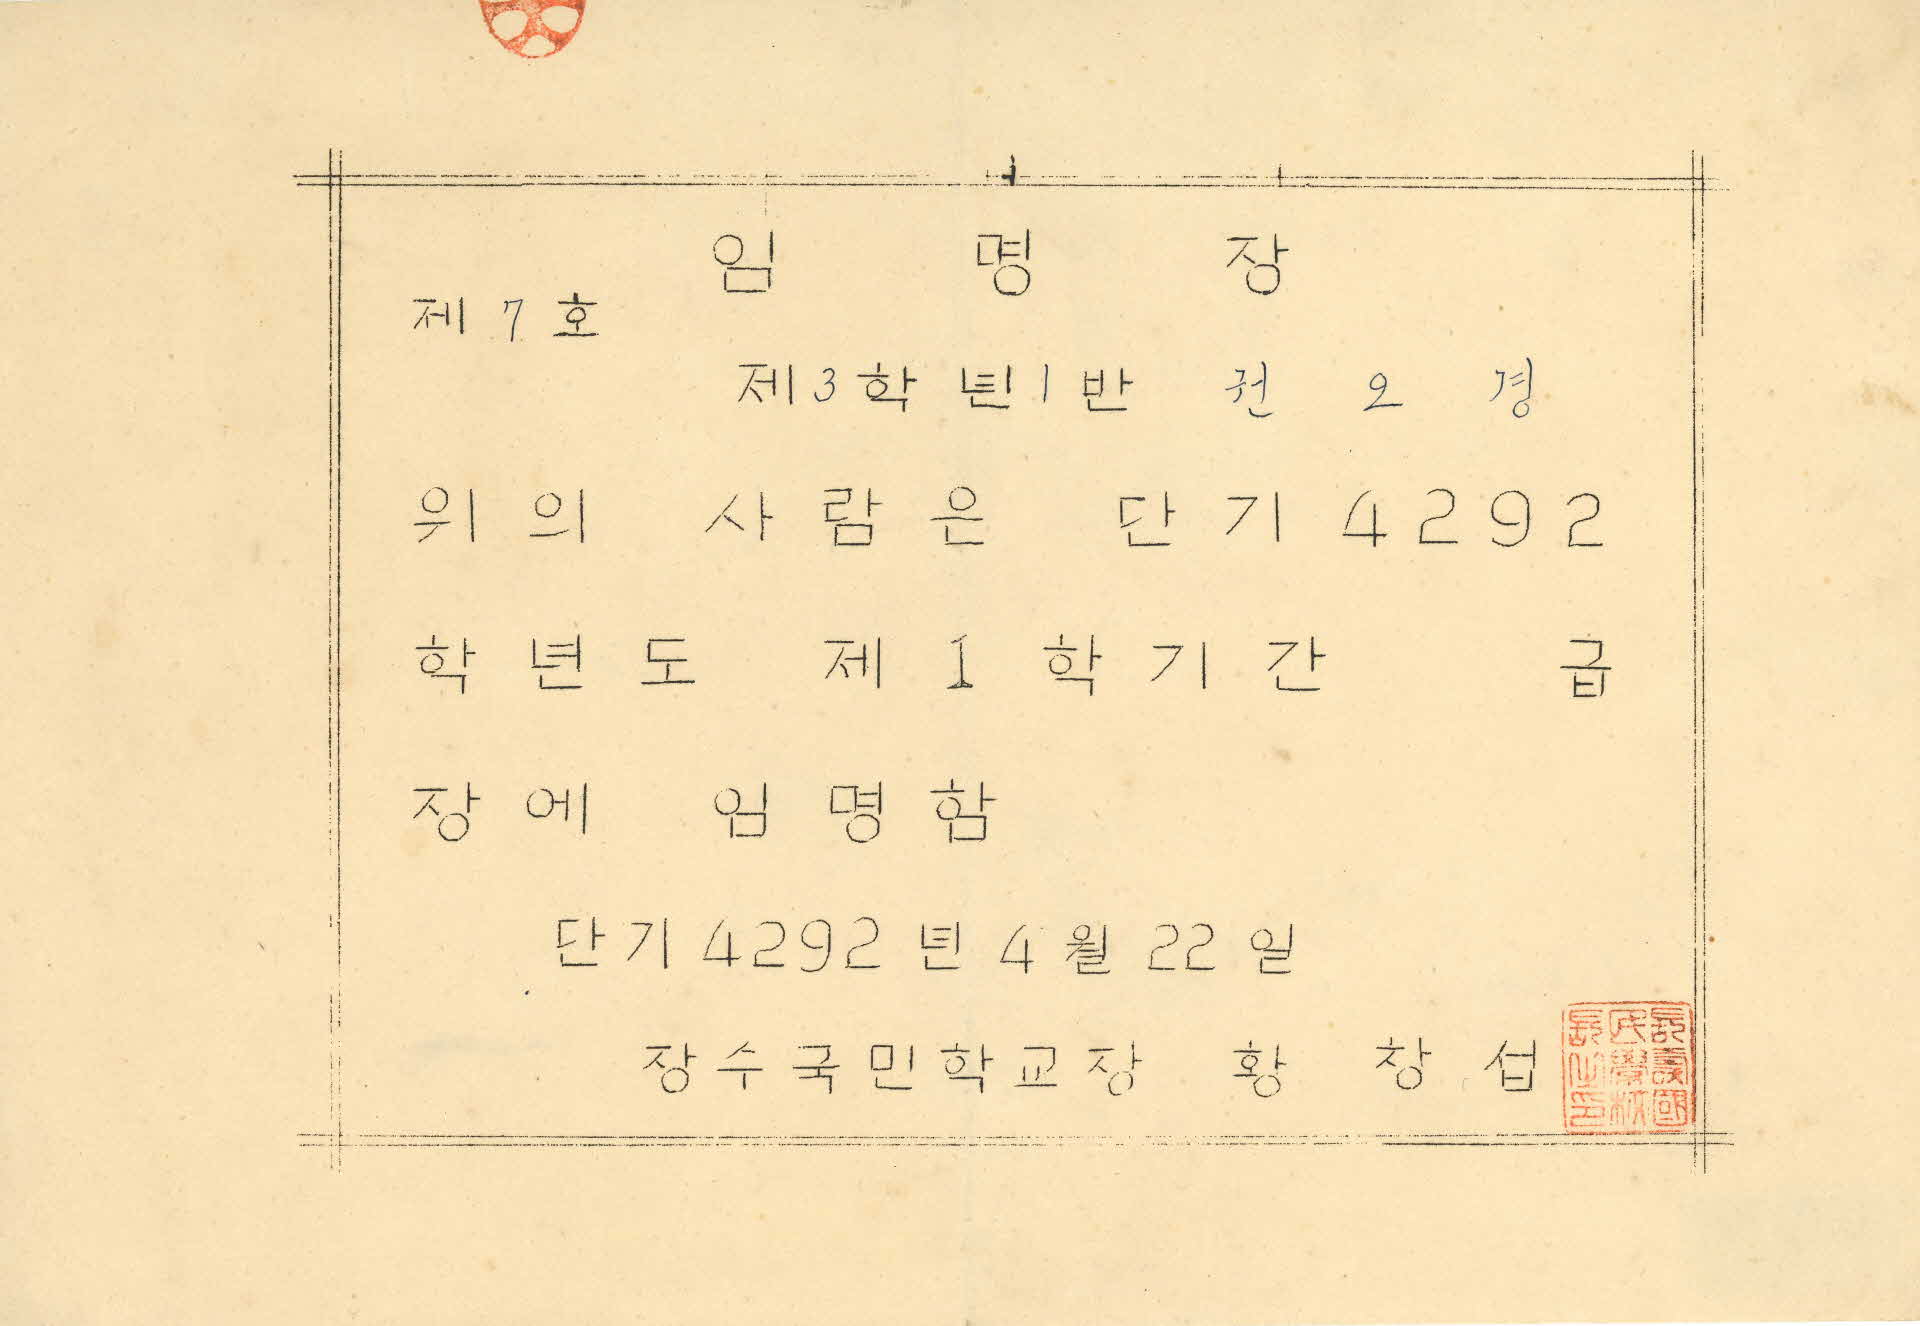 임 명 장
제 7 호
제3학년1반 권 오 경
위의 사람은 단기4292
학년도 제1학기간 급
장에 임명함
단기4292년4월22일
장수국민학교장 황 창 섭
長壽國民學校長之印